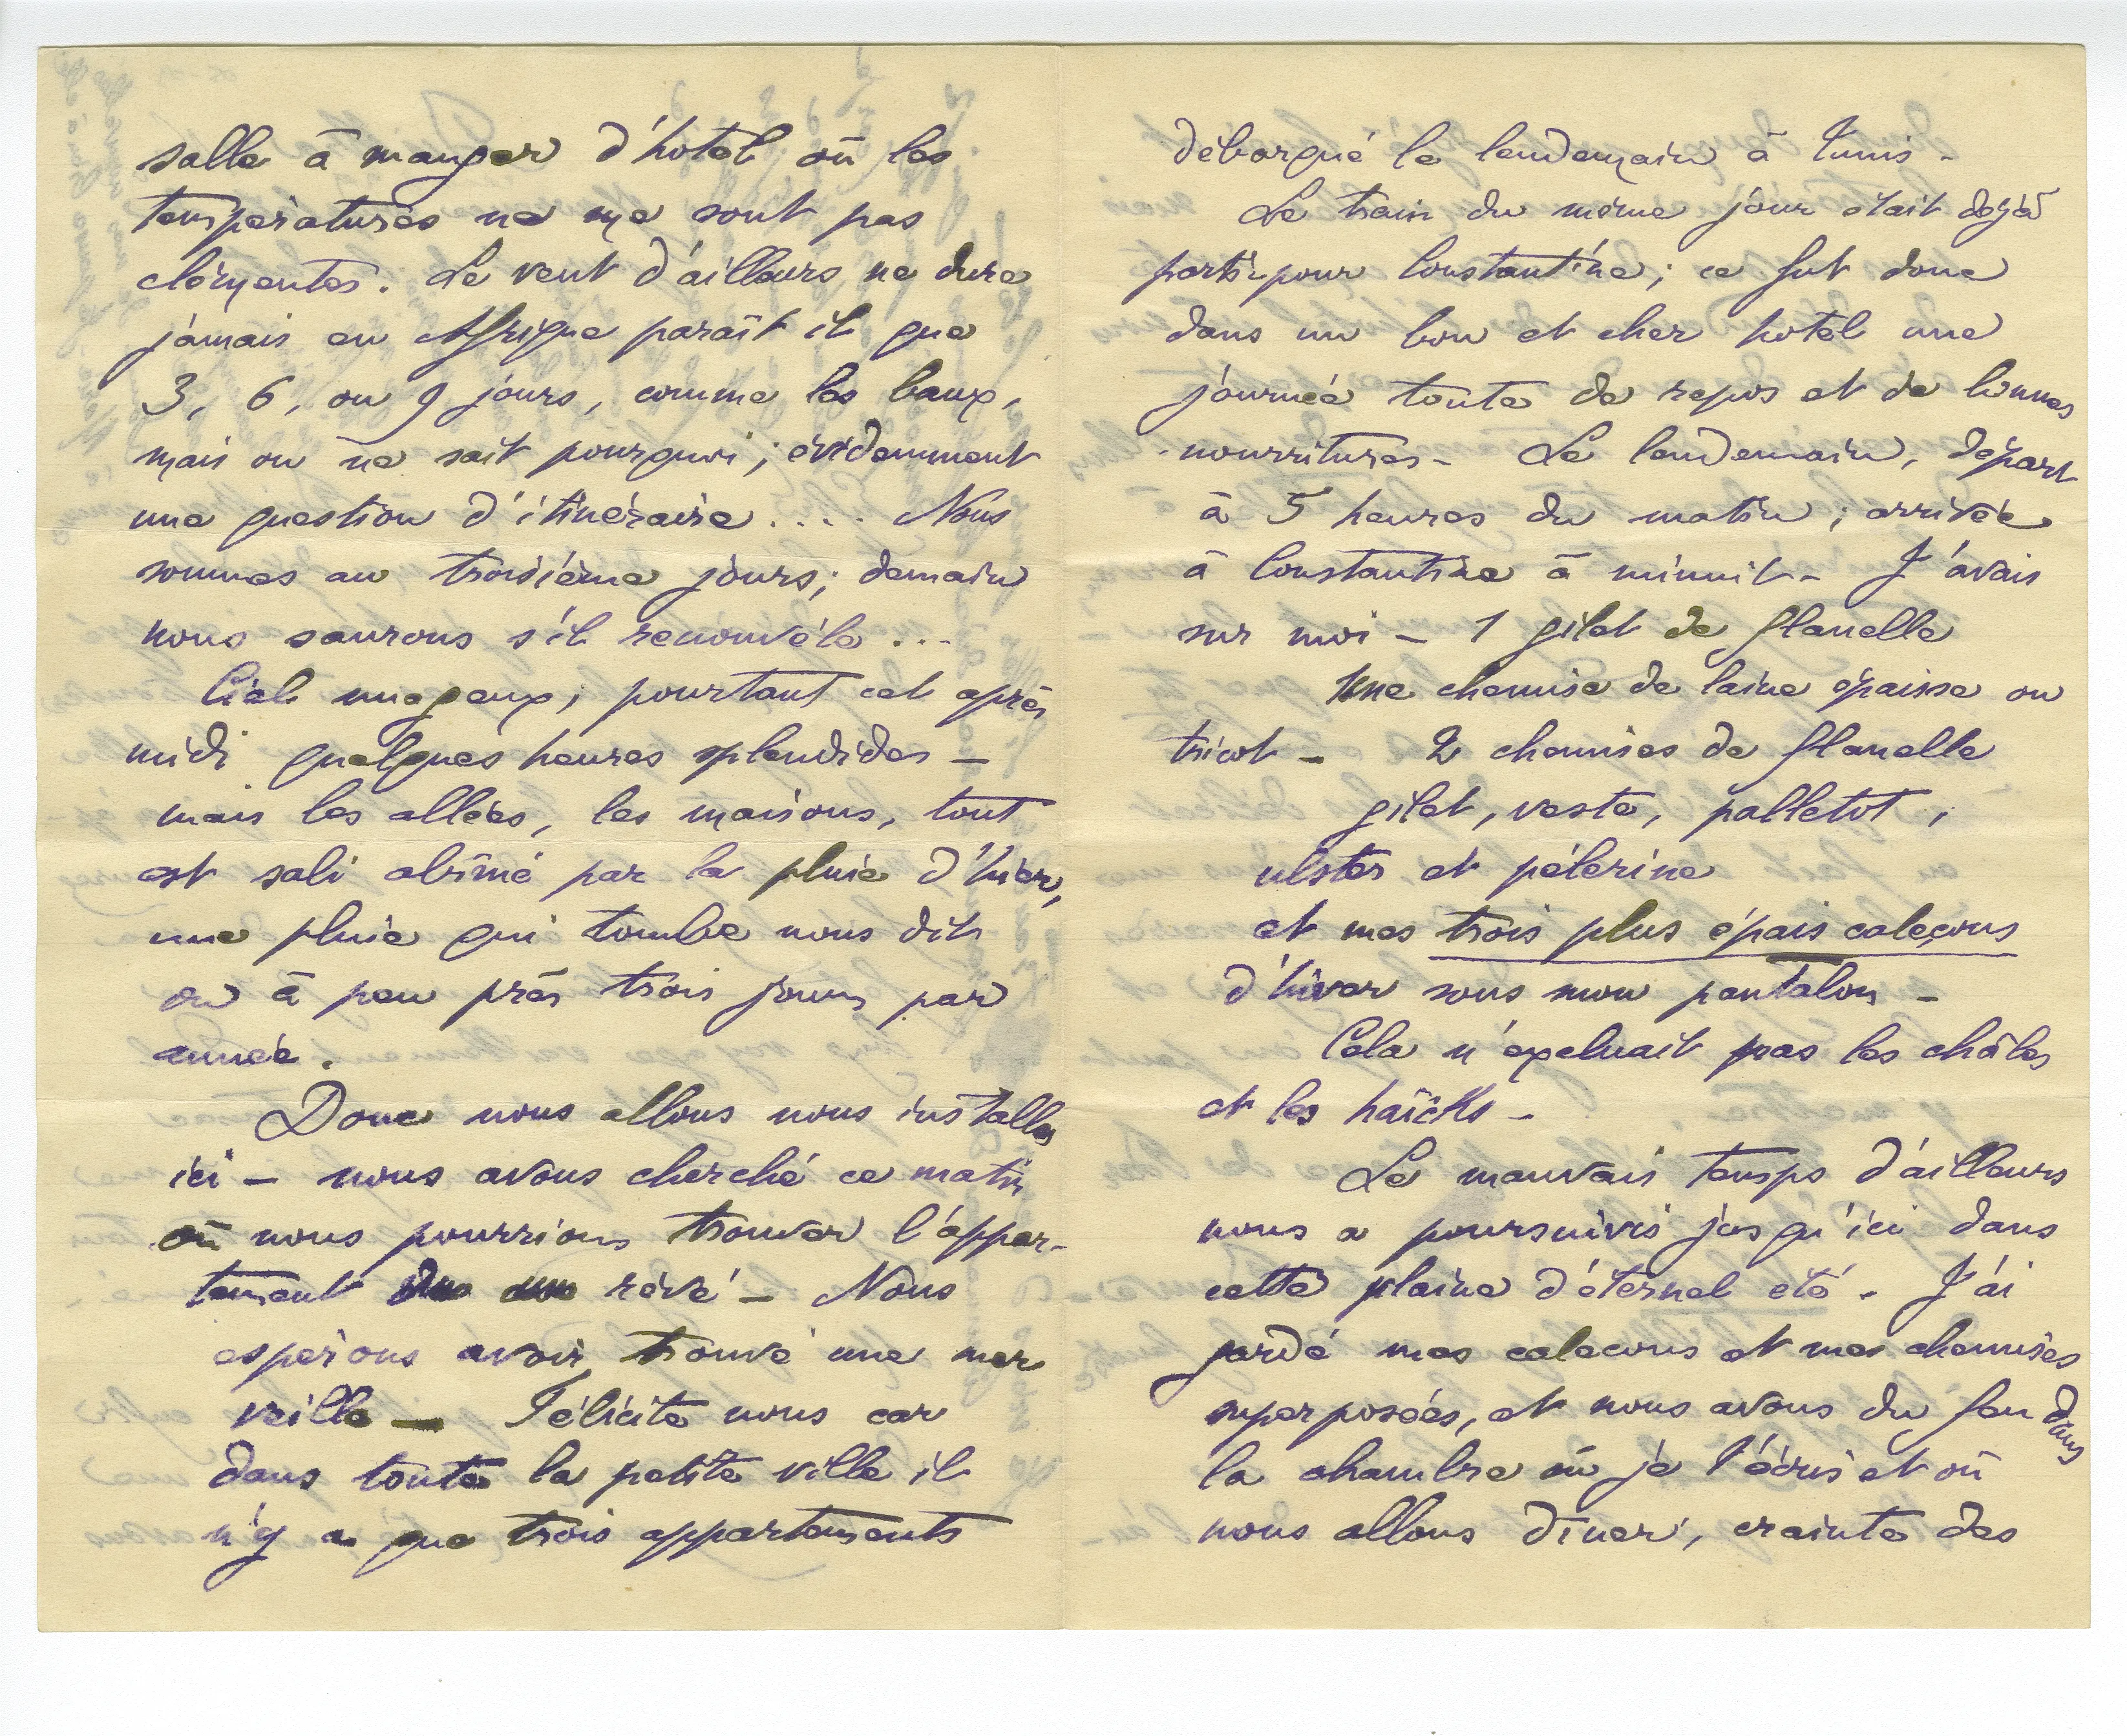 salle à manger d'hotel où les
températures ne me sont pas
clémentes. Le vent d'ailleurs ne dure
jamais en Afrique paraît il que
3, 6, ou 9 jours, comme les baux,
mais on ne sait pourquoi ; évidemment
une question d'itinéraire .... Nous
sommes au troisième jours; demain
nous saurons s'il renouvéle ...
Ciel nuageux; pourtant cet après
midi quelques heures splendides —
mais les allées, les maisons, tout
est sali abîmé par la pluie d'hier,
une pluie qui tombe nous dit
on à peu près trois jours par
année.
Donc nous allons nous installer
ici — nous avons cherché ce matin
où nous pourrions trouver l'appar-
tement rêvé — Nous
esperions avoir trouvé une mer
veille — Félicite nous car
dans toute la petite ville il
n'y a que trois appartements
débarqué le lendemain à Tunis -
Le train du même jour était déjà
parti pour Constantine; ce fut donc
dans un bon et cher hotel une
journée toute de repos et de bonnes
nourritures - Le lendemain, départ
à 5 heures du matin; arrivée
à Constantine à minuit - J'avais
sur moi — 1 gilet de flanelle
Une chemise de laine épaisse ou
tricot — 2 chemises de flanelle
gilet, veste, palletot,
ulster et pélerine
et mes trois plus épais caleçons
d'hiver sous mon pantalon -
Cela n'excluait pas les châles
et les haïcks -
Le mauvais temps d'ailleurs
nous a poursuivis jusqu'ici dans
cette plaine d'éternel été. J'ai
gardé mes calecons et mes chemises
superposées, et nous avons du feu dans
la chambre où je t'écris et où
nous allons dîner, crainte des